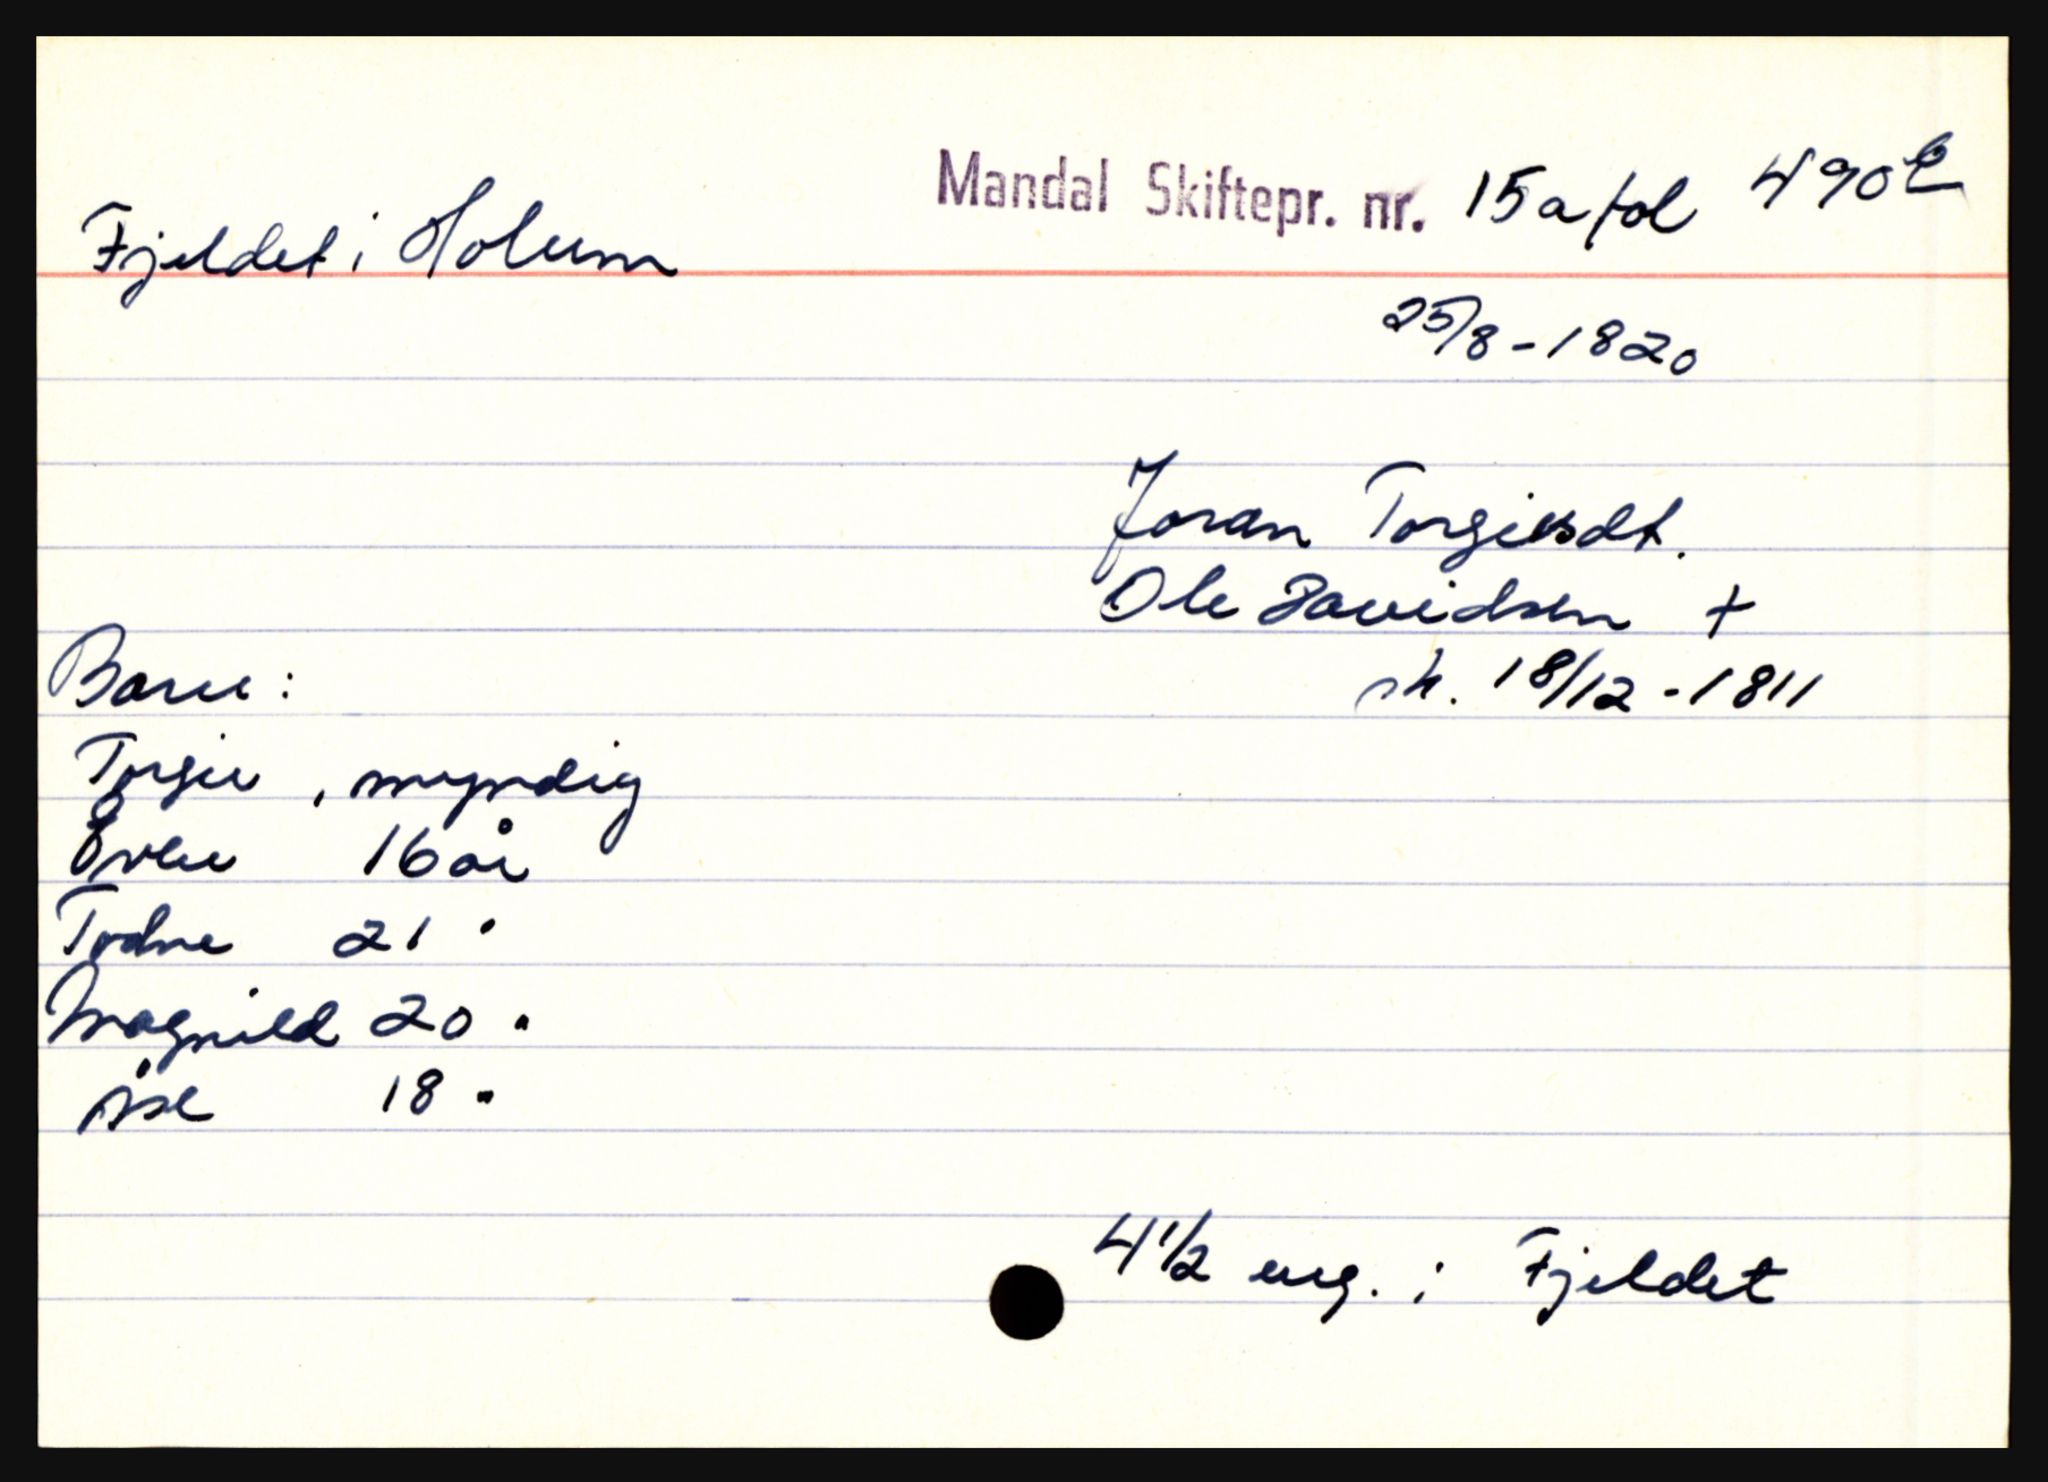 Mandal Skiftepr. nr. 15a fol 490b
Fjeldet i Holum
25/8-1820
Joran Torgiesdt.
Ole Davidsen +
sk. 18/12-1811
Barn:
Torgie, myndig
16 år
Todne 21 "
Magnild 20 "
Åse 18 "
4 1/2 eng. i Fjeldet